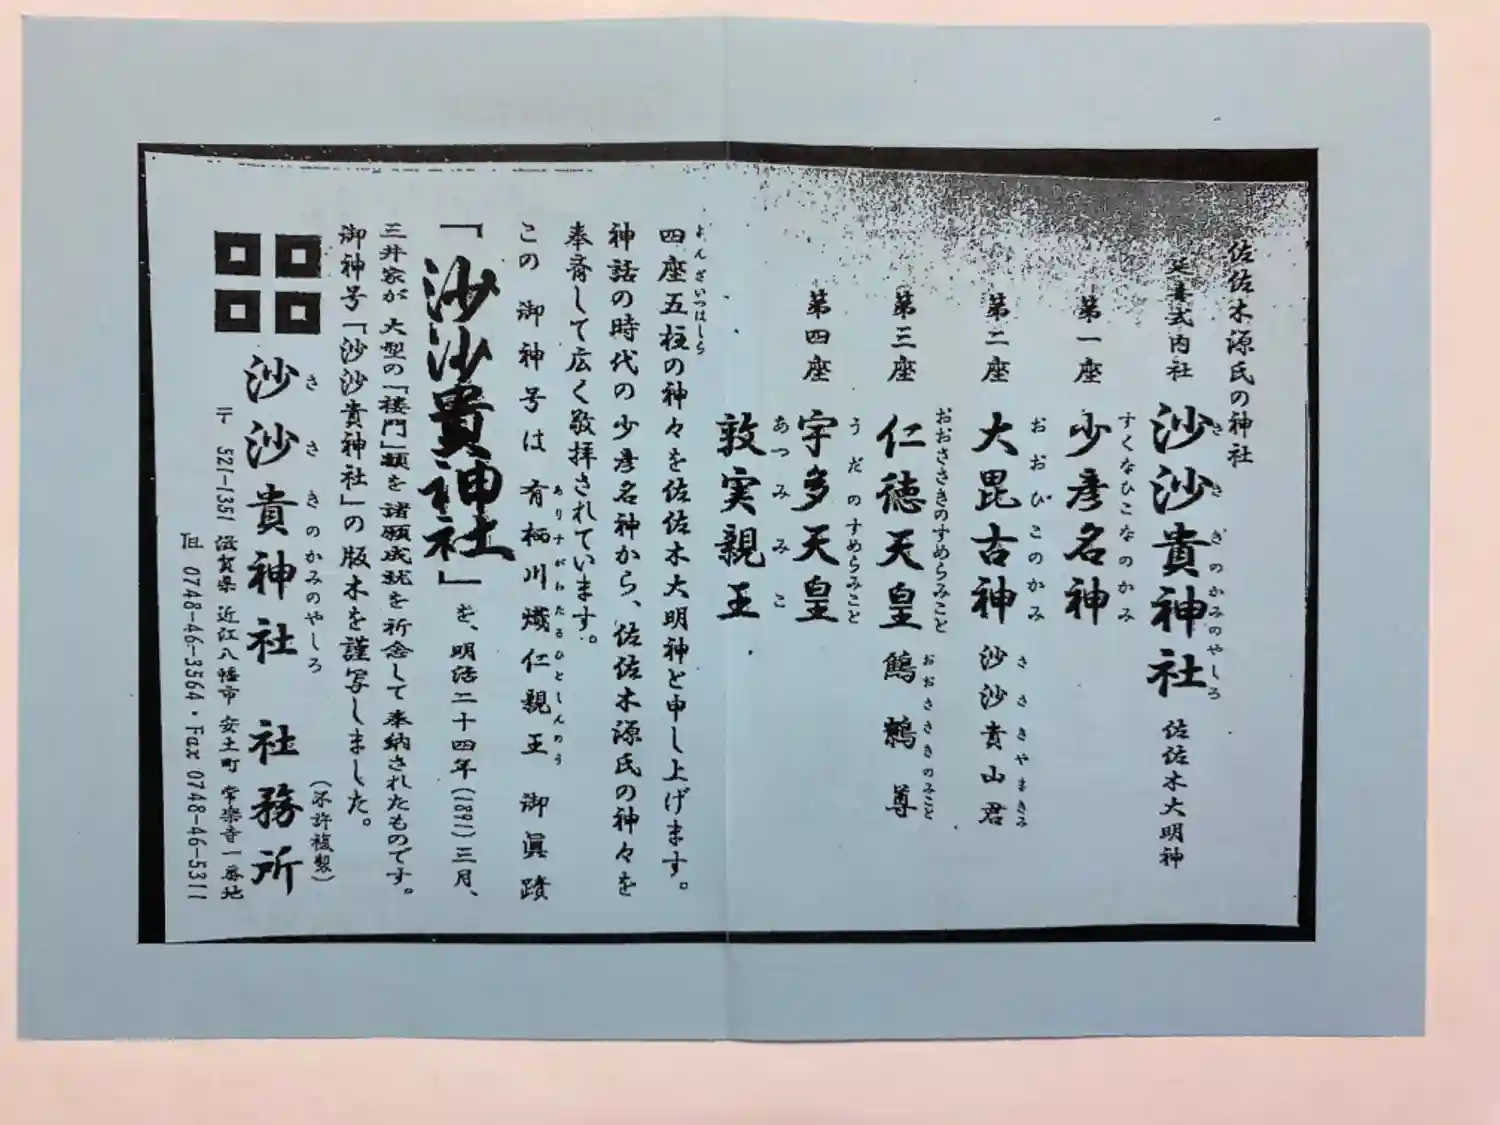 佐佐木源氏の神社
延喜式内社 沙沙貴神社 佐佐木大明神
さ さ ぎのかみのやしろ
第一座 少彦名神
すくなひこなのかみ
第二座 大毘古神 沙沙貴山君
おおびこのかみ ささきやまきみ
第三座 仁徳天皇 鷦鷯尊
おおささきのすめらみこと おおささきのみこと
第四座 宇多天皇
うだのすめらみこと
敦実親王
あつみみこ
四座五柱の神々を佐佐木大明神と申し上げます。
よんざいつはしら
神話の時代の少彦名神から、佐佐木源氏の神々を
奉斎して広く敬拝されています。
この御神号は有栖川熾仁親王 御眞蹟
ありすがわたるひとしんのう
「沙沙貴神社」を、明治二十四年(1891)三月、
三井家が大型の「楼門」額を諸願成就を祈念して奉納されたものです。
御神号「沙沙貴神社」の版木を謹写しました。
(不許複製)
沙沙貴神社 社務所
ささきのかみのやしろ
〒 521-1351 滋賀県 近江八幡市 安土町 常楽寺一番地
TEL 0748-46-3564・Fax 0748-46-5311